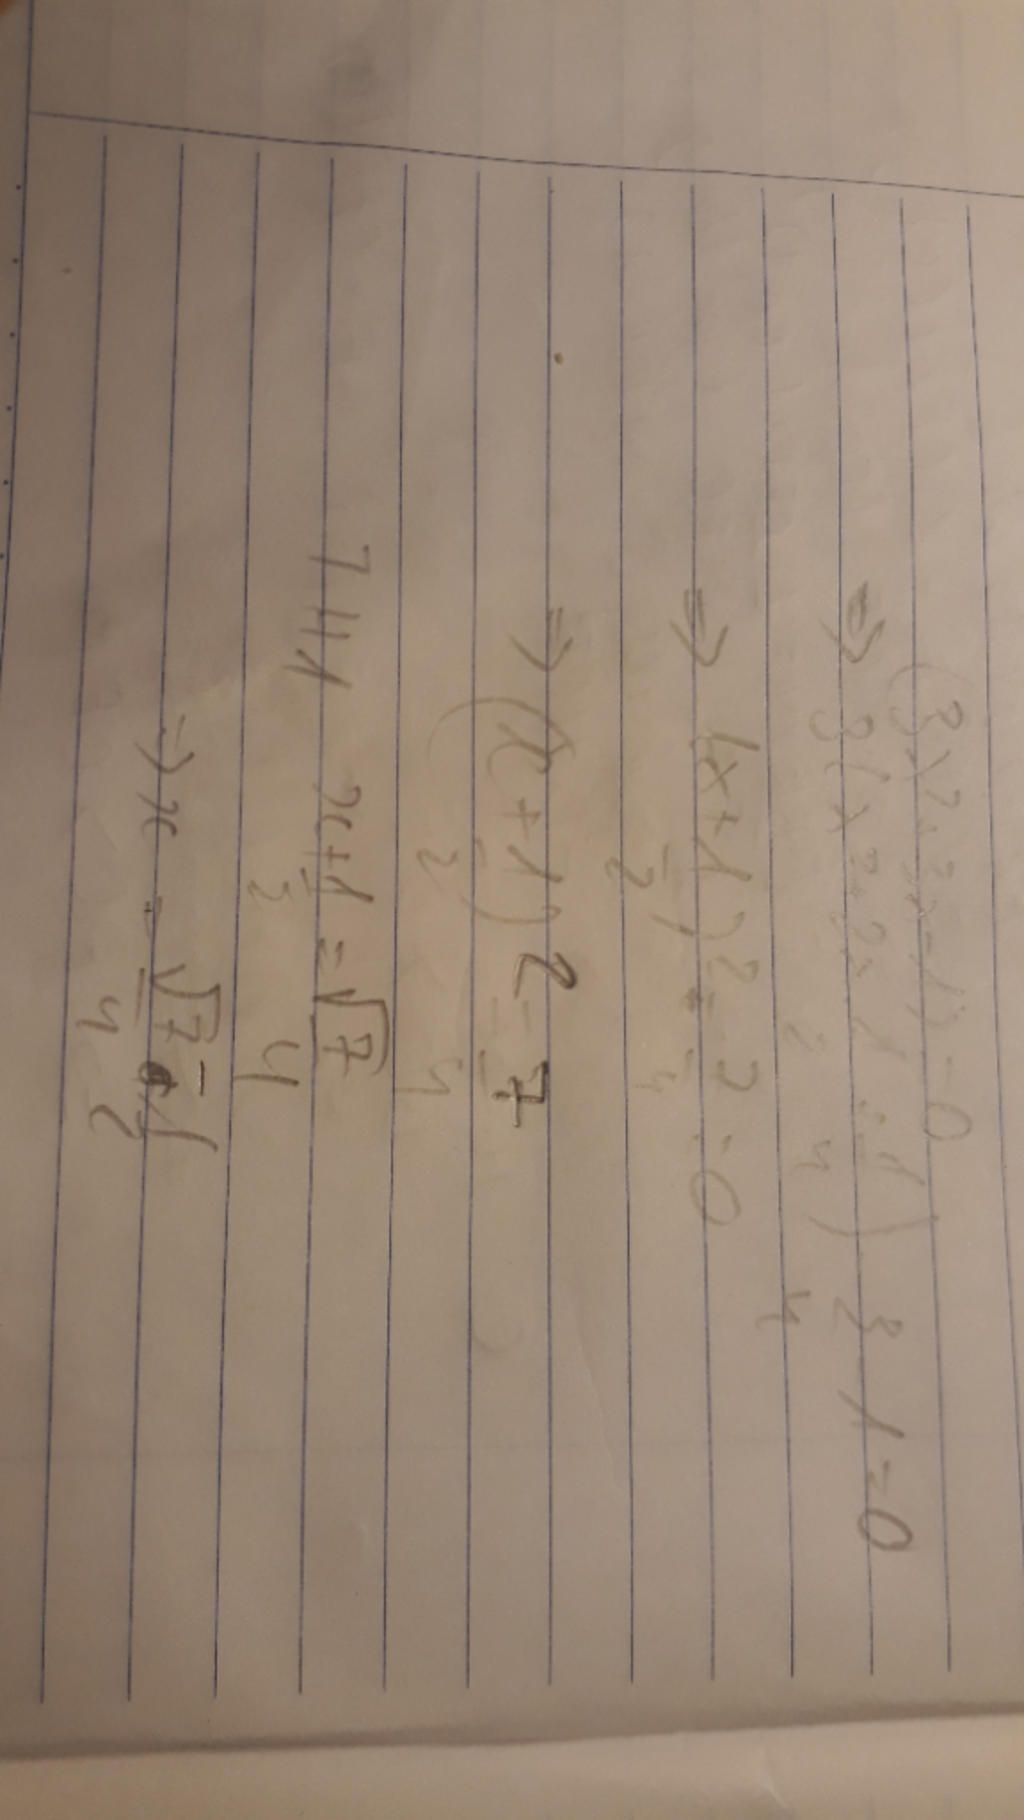 (3x²+3x-1)=0
⇒ 3(x²+2x 1/2 + 1/4) 3/4 - 1 = 0
⇒ (x+1/2)² - 7/4 = 0
⇒ (x+1/2)² = 7/4
TH1 x+1/2 = √7/4
⇒ x = √7/4 - 1/2